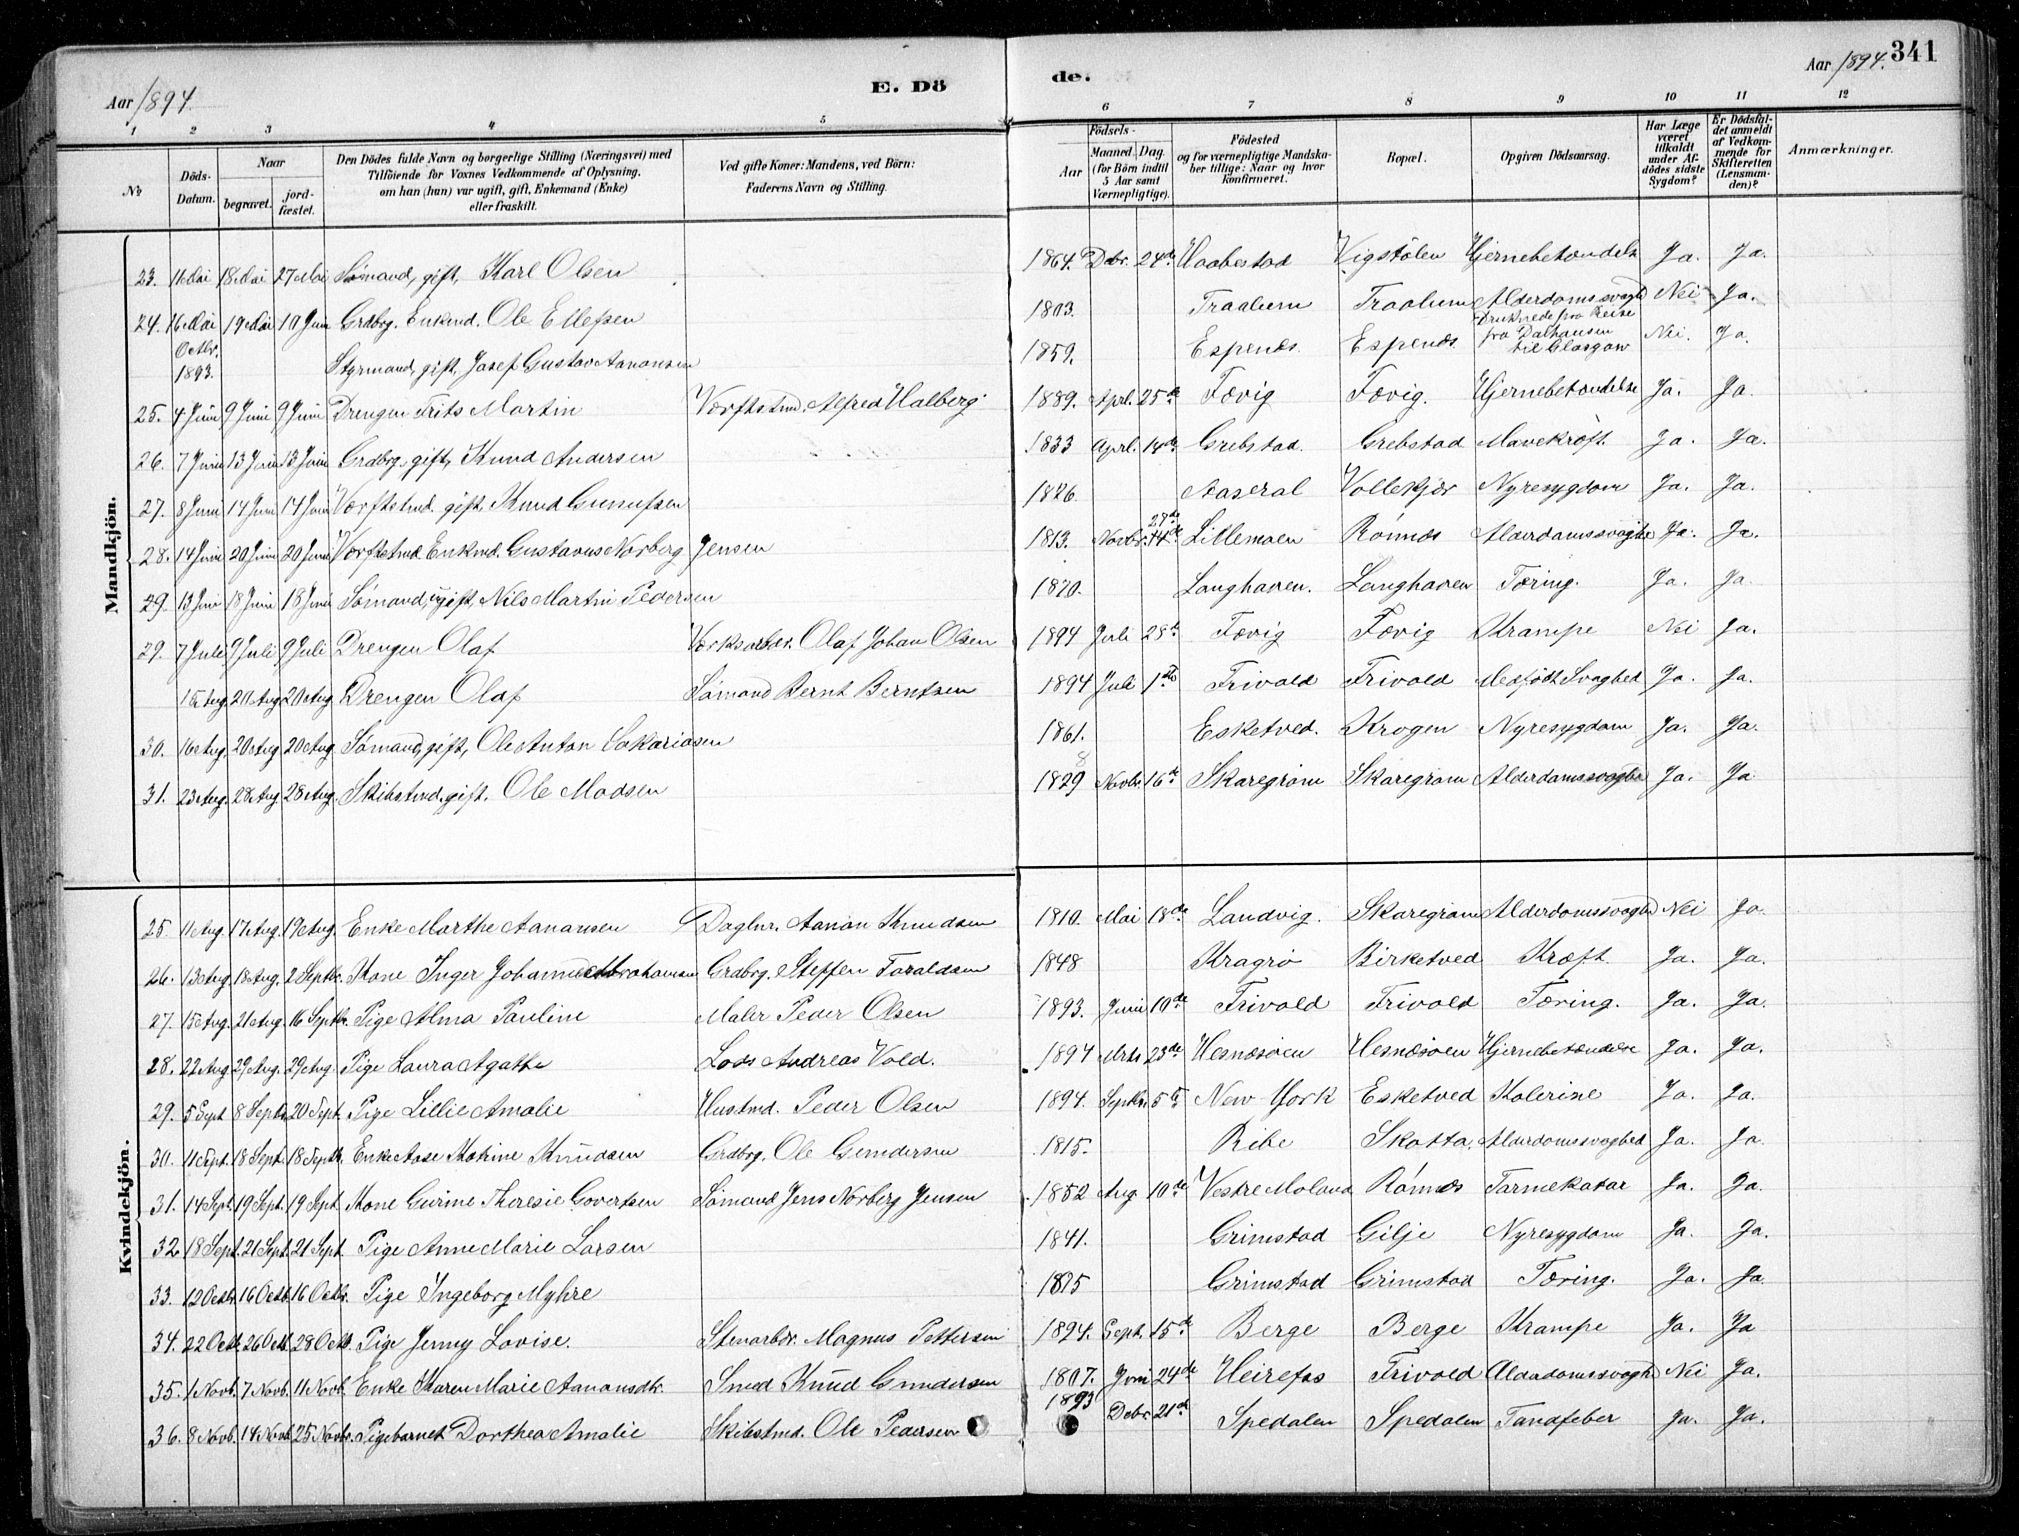 Aar 1894. E. Dö de. Aar 1894. 341
1 2 3 4 5 6 7 8 9 10 11 12
No Döds-Datum. Naar begravet. jordfæstet. Den Dödes fulde Navn og borgerlige Stilling (Næringsvei) med Tilföiende for Voxnes Vedkommende af Oplysning, om han (hun) var ugift, gift, Enkemand (Enke) eller fraskilt. Ved gifte Koner: Mandens, ved Börn: Faderens Navn og Stilling. Födsels- Aar Maaned. Dag. (for Börn indtil 5 Aar samt Værnepligtige). Födested og for værnepligtige Mandskaber tillige: Naar og hvor konfirmeret. Bopæl. Opgiven Dödsaarsag. Har Læge været tilkaldt under Afdödes sidste Sygdom? Er Dödsfaldet anmeldt af Vedkommende for Skifteretten (Lensmanden)? Anmærkninger.
Mandkjön.
23. 11 Mai 18 Mai 27 Mai Sømand, gift, Karl Olsen 1864. Dcbr. 24de Haabestad Vigstølen Hjernebetændelse Ja. Ja.
24. 16 Mai 19 Mai 10 Juni Grdbrg. Enkmd. Ole Ellefsen 1803. Traalum Traalum Alderdomssvaghd Nei Ja.
Octbr. 1893. Styrmand, gift, Josef Gustav Aanonsen 1859. Espenes. Espenes. Druknede fra Reise fra Dalhausen til Glasgow Nei. Ja.
25. 4 Juni 9 Juni 9 Juni Drengen Frits Martin Værftstmd. Alfred Halberg 1889. Aprl. 25de Fævig Fævig. Hjernebetændelse Ja. Ja.
26. 7 Juni 13 Juni 13 Juni Grdbrg. gift, Knud Andersen 1833 Aprl. 14de Grebstad. Grebstad Mavekræft. Ja. Ja.
27. 8 Juni 14 Juni 14 Juni Værftstmd. gift, Knud Gunufsen 1826. Aaseral Vollekjær Nyresygdom Ja. Ja.
28. 14 Juni 20 Juni 20 Juni Værftstmd. Enkmd. Gustavus Norberg Jensen 1813. Novbr. 28de 14de Lillemoen Rønnes Alderdomssvaghe Ja. Ja.
29. 13 Juni 18 Juni 18 Juni Sømand, ugift, Nils Martin Pedersen 1870. Langhaven. Langhaven Tæring. Ja. Ja.
29. 7 Juli 9 Juli 9 Juli Drengen Olaf Værksarbdr. Olaf Johan Olsen 1894 Juli 28de Fævig Fævig Krampe Nei Ja.
15 Aug. 20 Aug 20 Aug. Drengen Olaf Sømand Bernt Berntsen 1894 Juli 1ste Frivold Frivold Medfødt Svaghed Ja. Ja.
30. 16 Aug. 20 Aug 20 Aug Sømand, gift, Ole Anton Sakariasen 1861. Esketved. Krogen Nyresygdom Ja. Ja.
31. 23 Aug. 28 Aug 28 Aug. Skibstmd, gift. Ole Madsen 1829 Novbr. 16de Skaregrøm Skaregrøm Alderdomssvaghe Ja. Ja
Kvindekjön.
25. 11 Aug. 17 Aug. 19 Aug. Enke Marthe Aanonsen Daglnr. Aanon Knudsen 1810. Mai 18de Landvig. Skaregrøm Alderdomssvaghed Nei Ja.
26. 13 Aug 18 Aug. 2 Septbr. Kone Inger Johanne Abrahamsen Grdbrg. Steffen Taraldsen 1848 Kragrø Birketved Kræft. Ja. Ja.
27. 15 Aug. 21 Aug. 16 Septbr. Pige Alma Pauline Maler Peder Olsen 1893. Juni 10de Frivold Frivold Tæring. Ja. Ja.
28. 22 Aug 29 Aug. 29 Aug. Pige Laura Agathe Lods Andreas Vold. 1894 Mrts 23de Hesnesøen Hesnesøen Hjernebetændelse Ja. Ja.
29. 5 Sept 8 Septbr. 20 Sept. Pige Lillie Amalie Hustmd. Peder Olsen 1894. Septbr. 5te New York Esketved Kolerine Ja. Ja.
30. 11 Sept. 18 Sept. 18 Septb. Enke Aase Katrine Knudsen Grdbrg. Ole Gundersen 1815. Ribe Skatta Alderdomssvaghed Ja. Ja.
31. 14 Sept. 19 Sept. 19 Sept. Kone Gurine Theresie Govertsen Sømand Jens Norberg Jensen 1852 Aug 10de Vestre Moland Rønnes Tarmekatar Ja. Ja.
32. 18 Sept. 21 Sept. 21 Sept. Pige Anne Marie Larsen 1841. Grimstad Gilje Nyresygdom Ja. Ja.
33. 12 Octbr. 16 Octb. 16 Octbr. Pige Ingeborg Myhre 1875 Grimstad Grimstad Tæring. Ja. Ja
34. 22 Octb. 26 Octb. 28 Octb. Pige Jenny Lovise. Stenarbdr. Magnus Pettersen 1894. Sept. 15de Berge Berge Krampe Ja. Ja
35. 1 Novb. 7 Novb. 11 Novb. Enke Karen Marie Aanonsdtr. Smed Knud Gundersen 1807. Juni 24de Heirefos Frivold Alderdomssvaghd Nei Ja.
36. 8 Novb. 14 Novb. 25 Novbr. Pigebarnet Dorthea Amalie Skibstmd. Ole Pedersen 1893 Debr. 21de Spedalen Spedalen Tandfeber Ja. Ja.